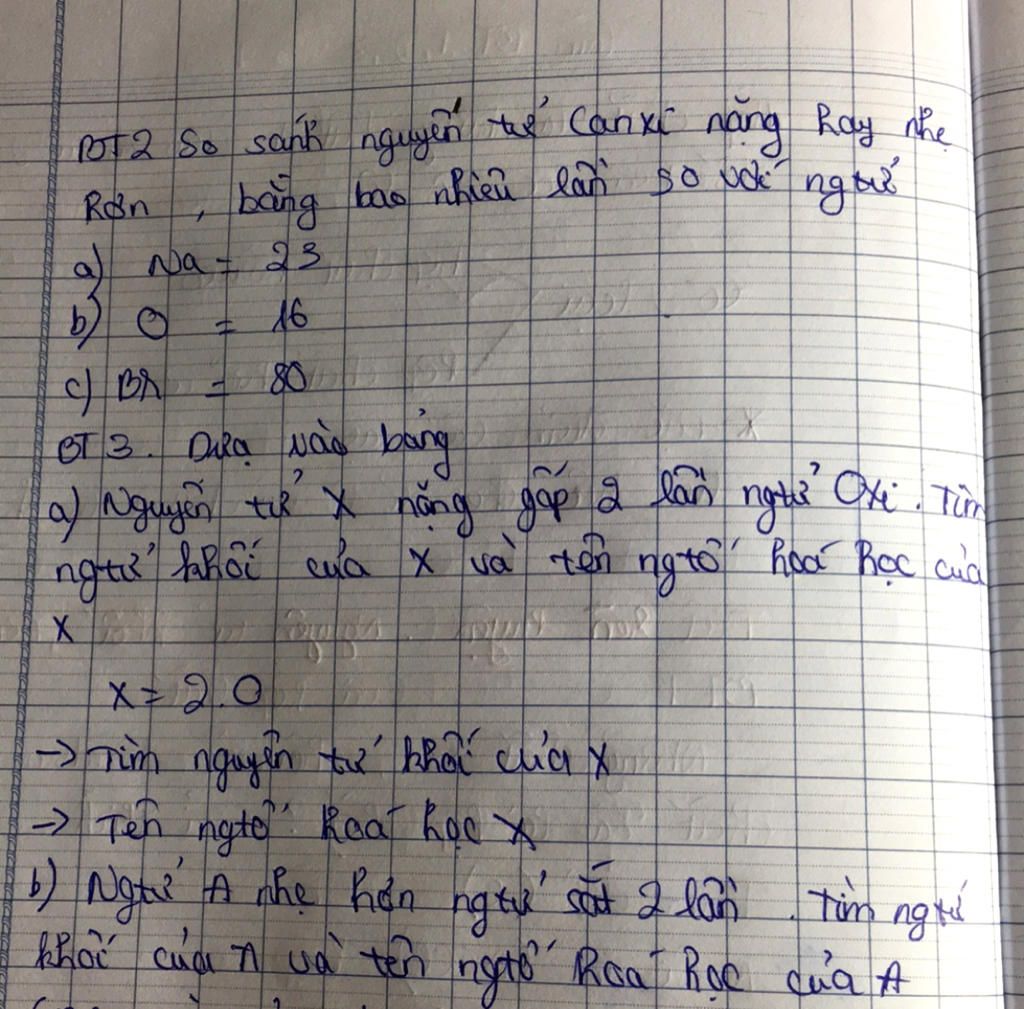 BT2 So sánh nguyên tử Canxi nặng hay nhẹ
hơn, bằng bao nhiêu lần so với ngtử
a) Na = 23
b) O = 16
c) Br = 80
BT3. Dựa vào bảng
a) Nguyên tử X nặng gấp 2 lần ngtử Oxi. Tìm
ngtử khối của X và tên ngtố hoá học của
X
X = 2.O
→ Tìm nguyên tử khối của X
→ Tên ngtố hoá học X
b) Ngtử A nhẹ hơn ngtử sắt 2 lần. Tìm ngtử
khối của A và tên ngtố hoá học của A